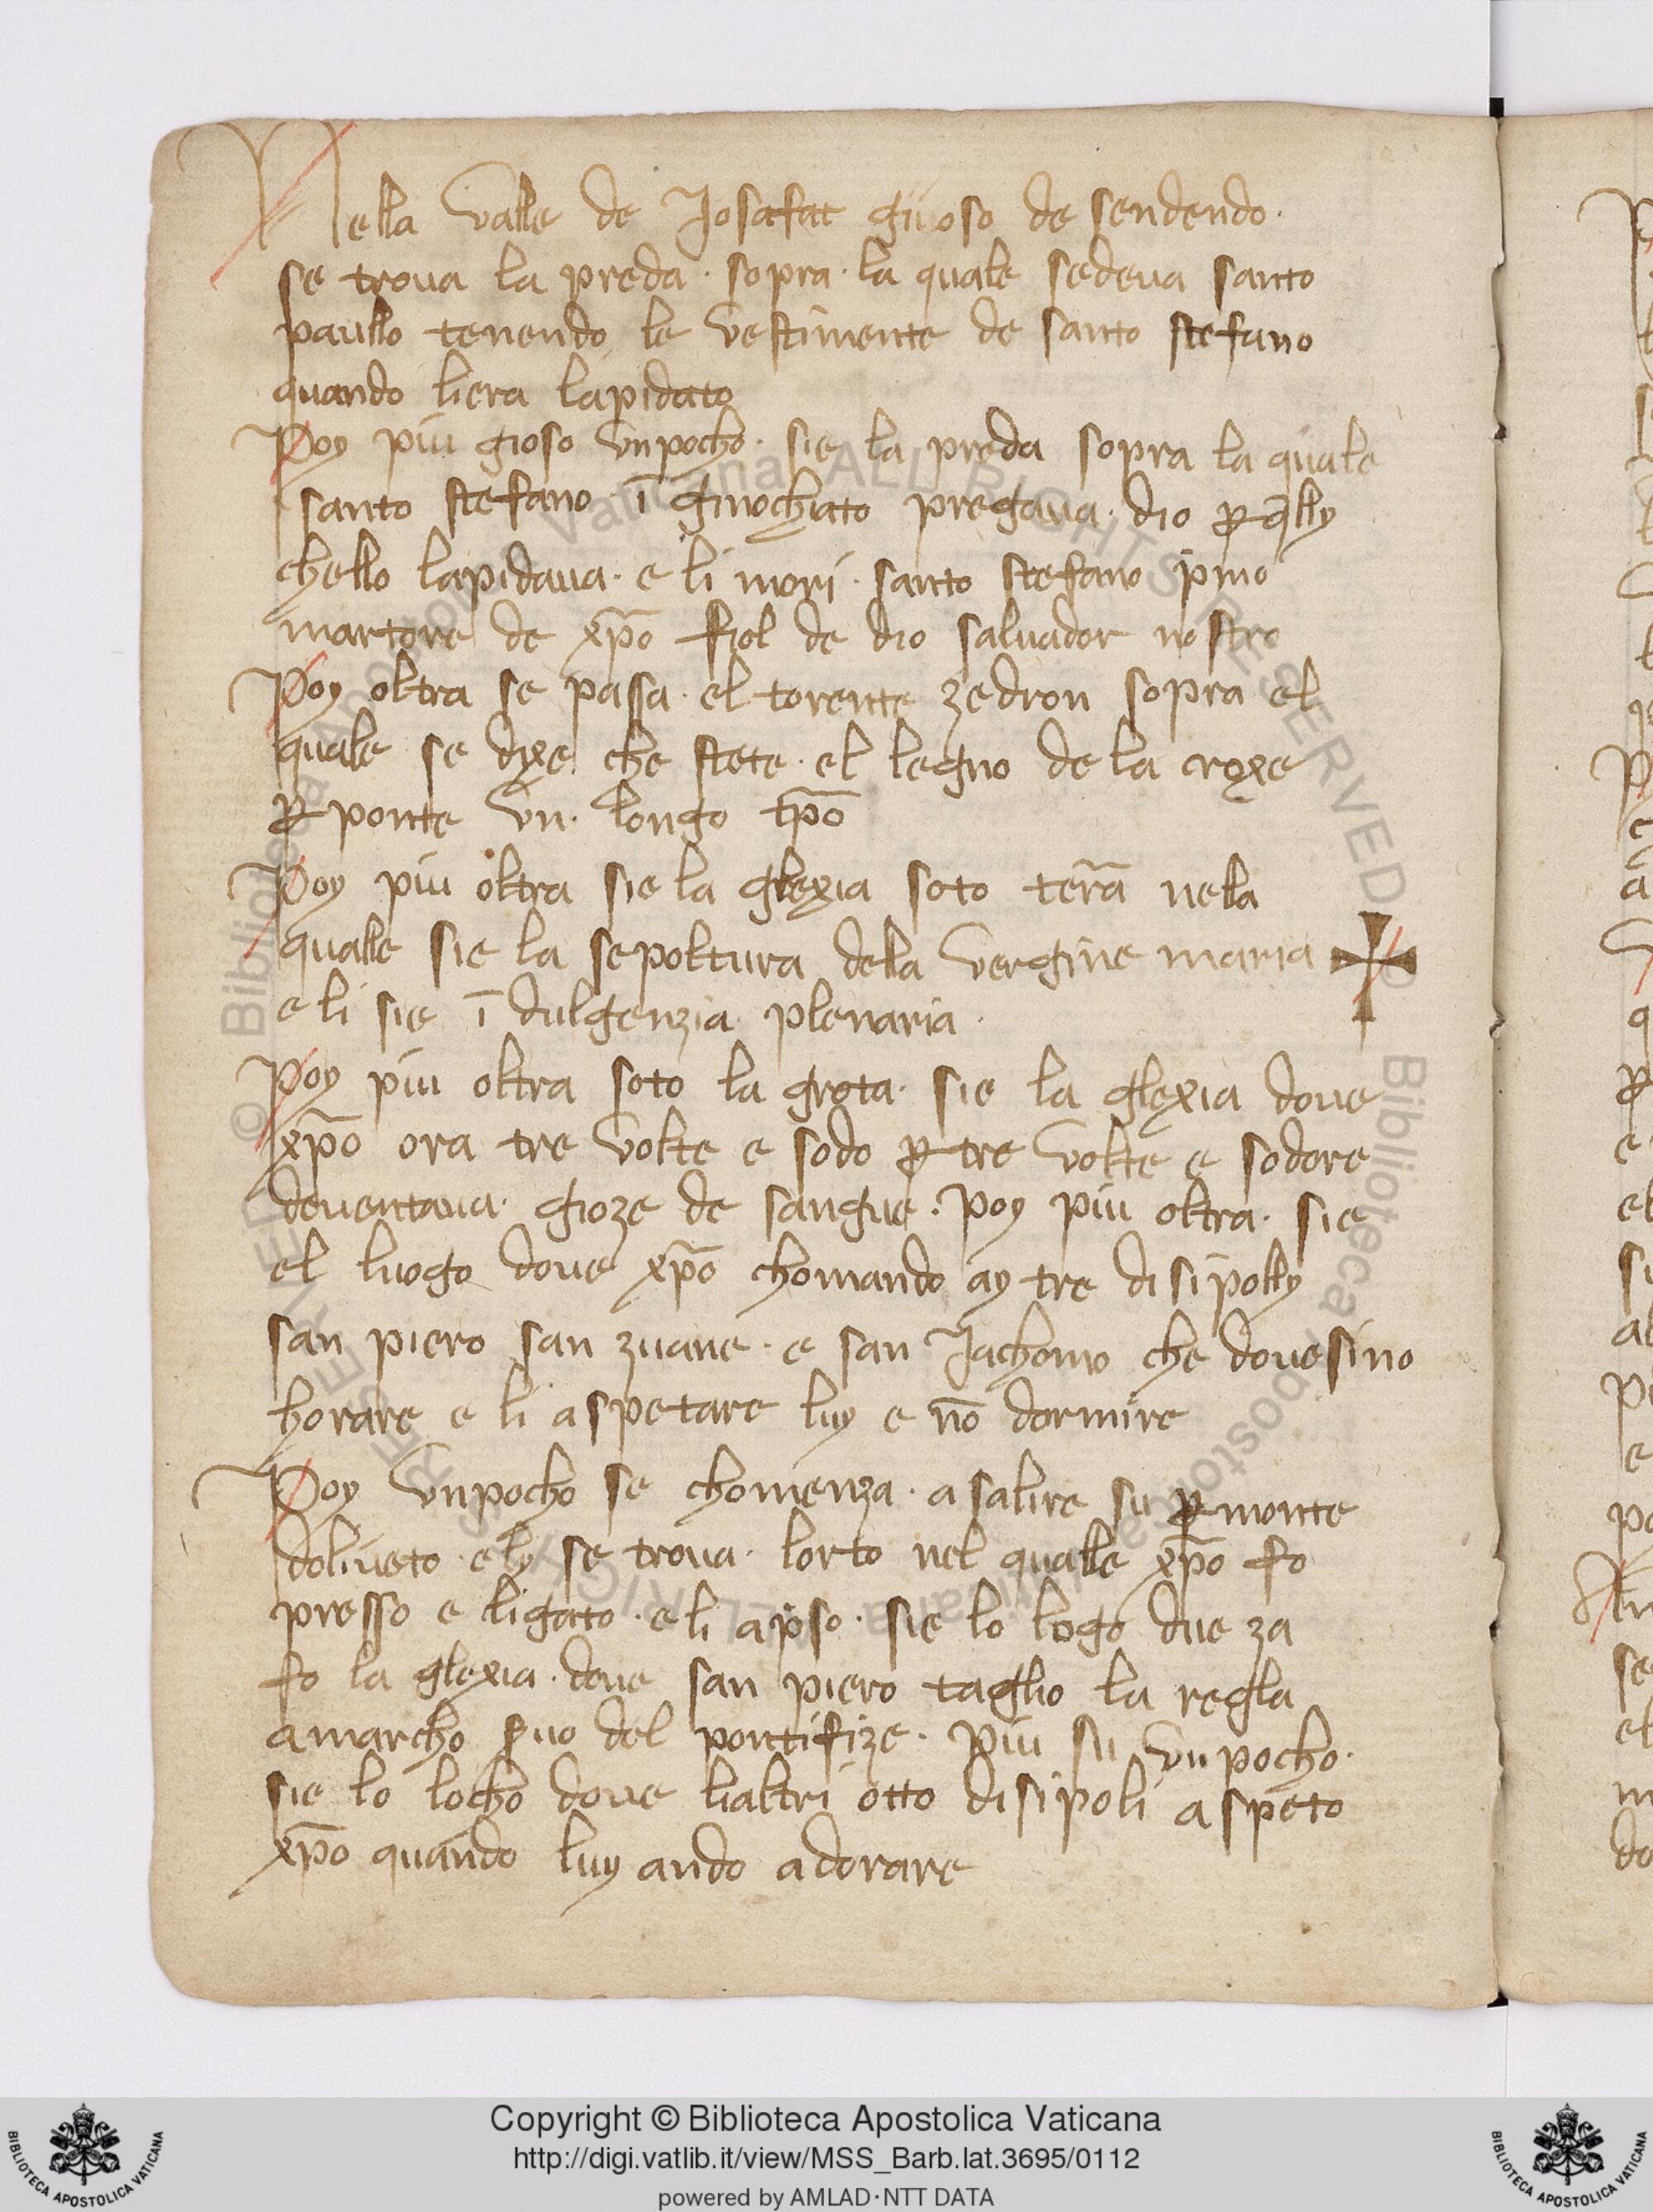 Nella valle de Josafat giioso de sendendo.
se trova la preda . sopra . la quale sedeva santo
paullo tenendo le vestimente de santo stefano
quando liera lapidato
Poy piu gioso unpocho . sie la preda sopra la quale
santo stefano . ī ginochiato pregava . dio ꝑ q̄lly
chello lapidava . e li mori . santo stefano pimo
martore de xp̄o fiol de dio salvador nostro
Poy oltra se passa . el torente zedron sopra el
quale se dixe che stete . el legno de la croxe
ꝑ ponte un . longo tp̄o
Poy piu oltra sie la glexia soto terā nella
qualle sie la sepoltura della vergine maria ✠
e li sie ī dulgenzia plenaria .
Poy piu oltra soto la grota . sie la glexia dove
xp̄o ora tre volte e sodo ꝑ tre volte e sodore
deventava . gioze de sangue . poy piu oltra . sie
el luogo dove xp̄o chomando ay tre disipolly
san piero san zuane . e san Jachomo che dovesino
horare e li aspetare luy e nō dormire
Poy unpocho se chomenza . a salire su ꝑ monte
doliveto . e ly se trova . lorto nel qualle xp̄o fo
presso e ligato . e li apso . sie lo logo due za
fo la glexia . dove san piero taglio la regla
a marcho suo del pontifize . piu su un pocho .
sie lo locho dove lialtri otto disipoli aspeto
xp̄o quando luy ando adorare
Copyright © Biblioteca Apostolica Vaticana
http://digi.vatlib.it/view/MSS_Barb.lat.3695/0112
powered by AMLAD·NTT DATA
BIBLIOTECA APOSTOLICA VATICANA
BIBLIOTECA APOSTOLICA VATICANA